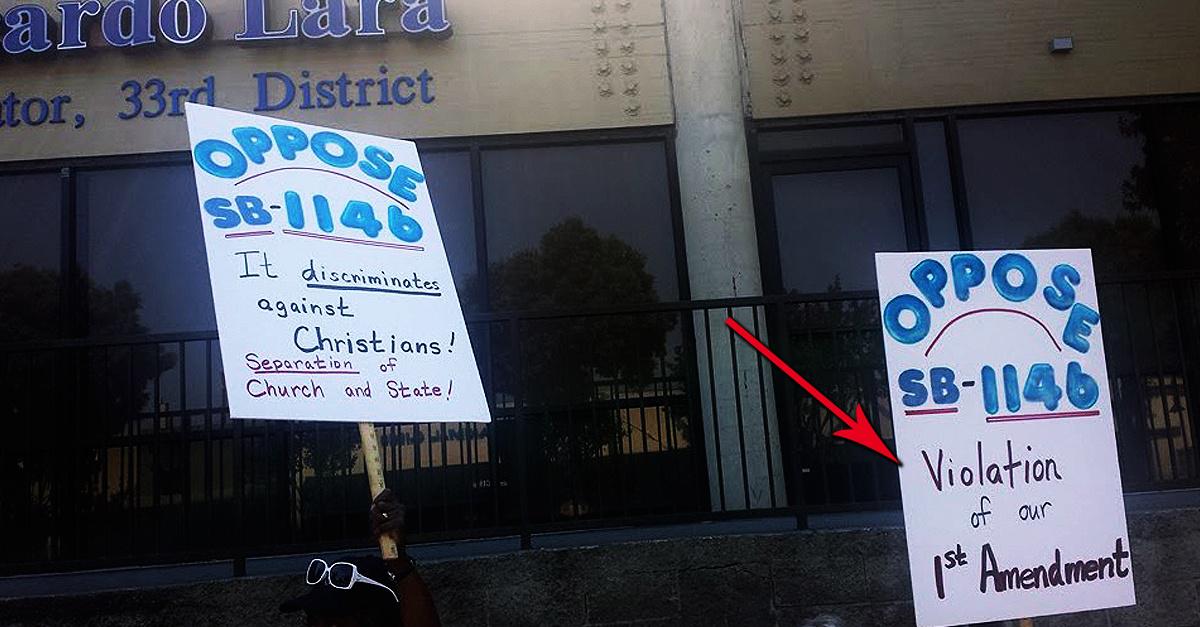 ardo Lara
ator, 33rd District
OPPOSE
SB-1146
It discriminates
against
Christians!
Separation of
Church and State!
OPPOSE
SB-1146
Violation
of our
1st Amendment